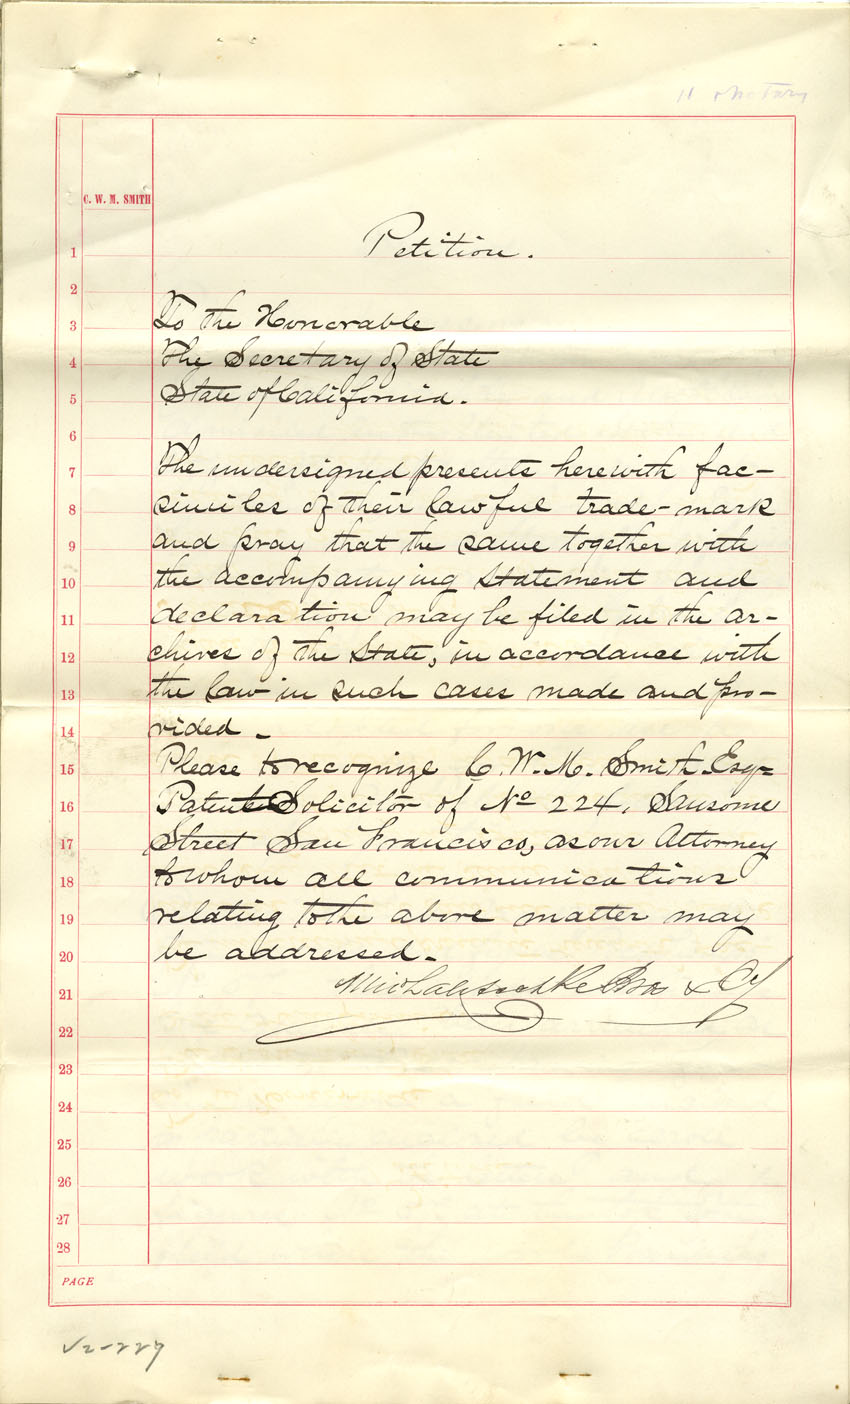 11 notary
C. W. M. SMITH
1 Petition.
2
3 To the Honorable
4 The Secretary of State
5 State of California.
6
7 The undersigned presents herewith fac-
8 similes of their lawful trade-mark
9 and pray that the same together with
10 the accompanying statement and
11 declaration may be filed in the ar-
12 chives of the State, in accordance with
13 the law in such cases made and pro-
14 vided.
15 Please to recognize C. W. M. Smith Esq=
16 Patent Solicitor of No 224, Sansome
17 Street San Francisco, as our Attorney
18 to whom all communications
19 relating to the above matter may
20 be addressed.
21 Michalitschke Bros & Co
22
23
24
25
26
27
28
PAGE
V2-227